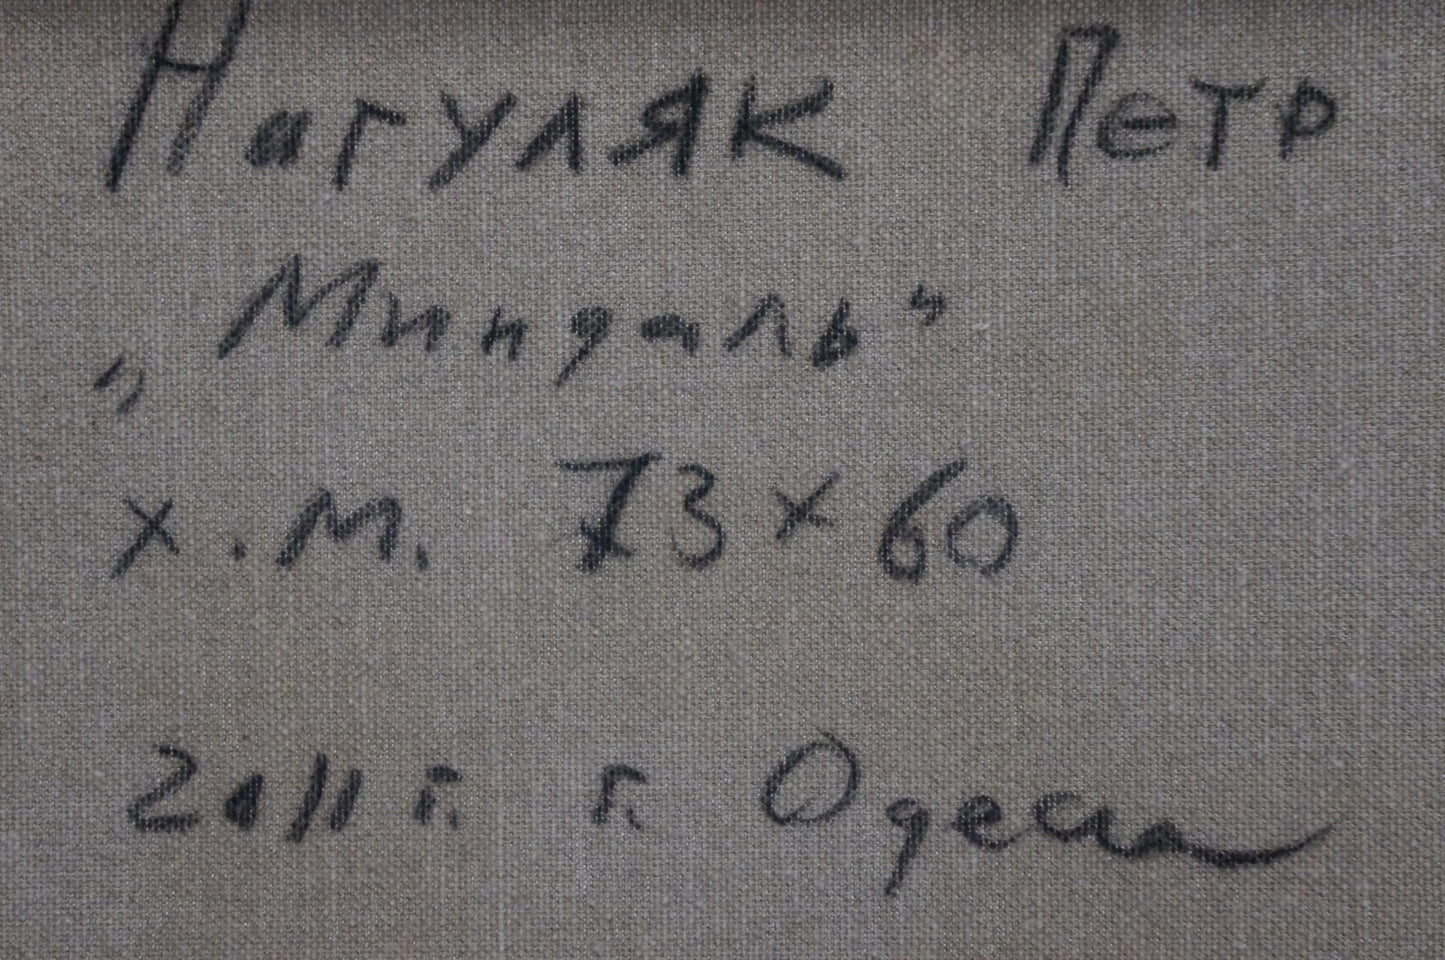 Нагуляк Петр
„Миндаль"
х.м. 73х60
2011 г. г. Одесса